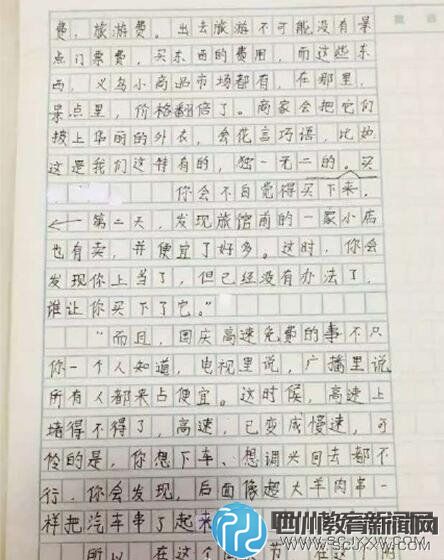 费，旅游费。出去旅游不可能没有景
点门票费，买东西的费用，而这些东
西，义乌小商品市场都有，在那里，
景点里，价格翻倍了。商家会把它们
披上华丽的外衣，会花言巧语，比如
这是我们这特有的，独一无二的。买
你会不自觉得买下来，
第二天，发现旅馆前的一家小店
也有卖，并便宜了好多。这时，你会
发现你上当了，但已经没有办法了，
谁让你买下了它。”
“而且，国庆高速免费的事不只
你一个人知道，电视里说，广播里说
所有人都来占便宜。这时候，高速上
堵得不得了，高速，已变成慢速，可
怜的是，你想下车、想调头回去都不
行，你会发现，后面像起大羊肉串一
样把汽车串了起来
所以，在这个
节
四川教育新闻网
WWW.SCJYXW.COM